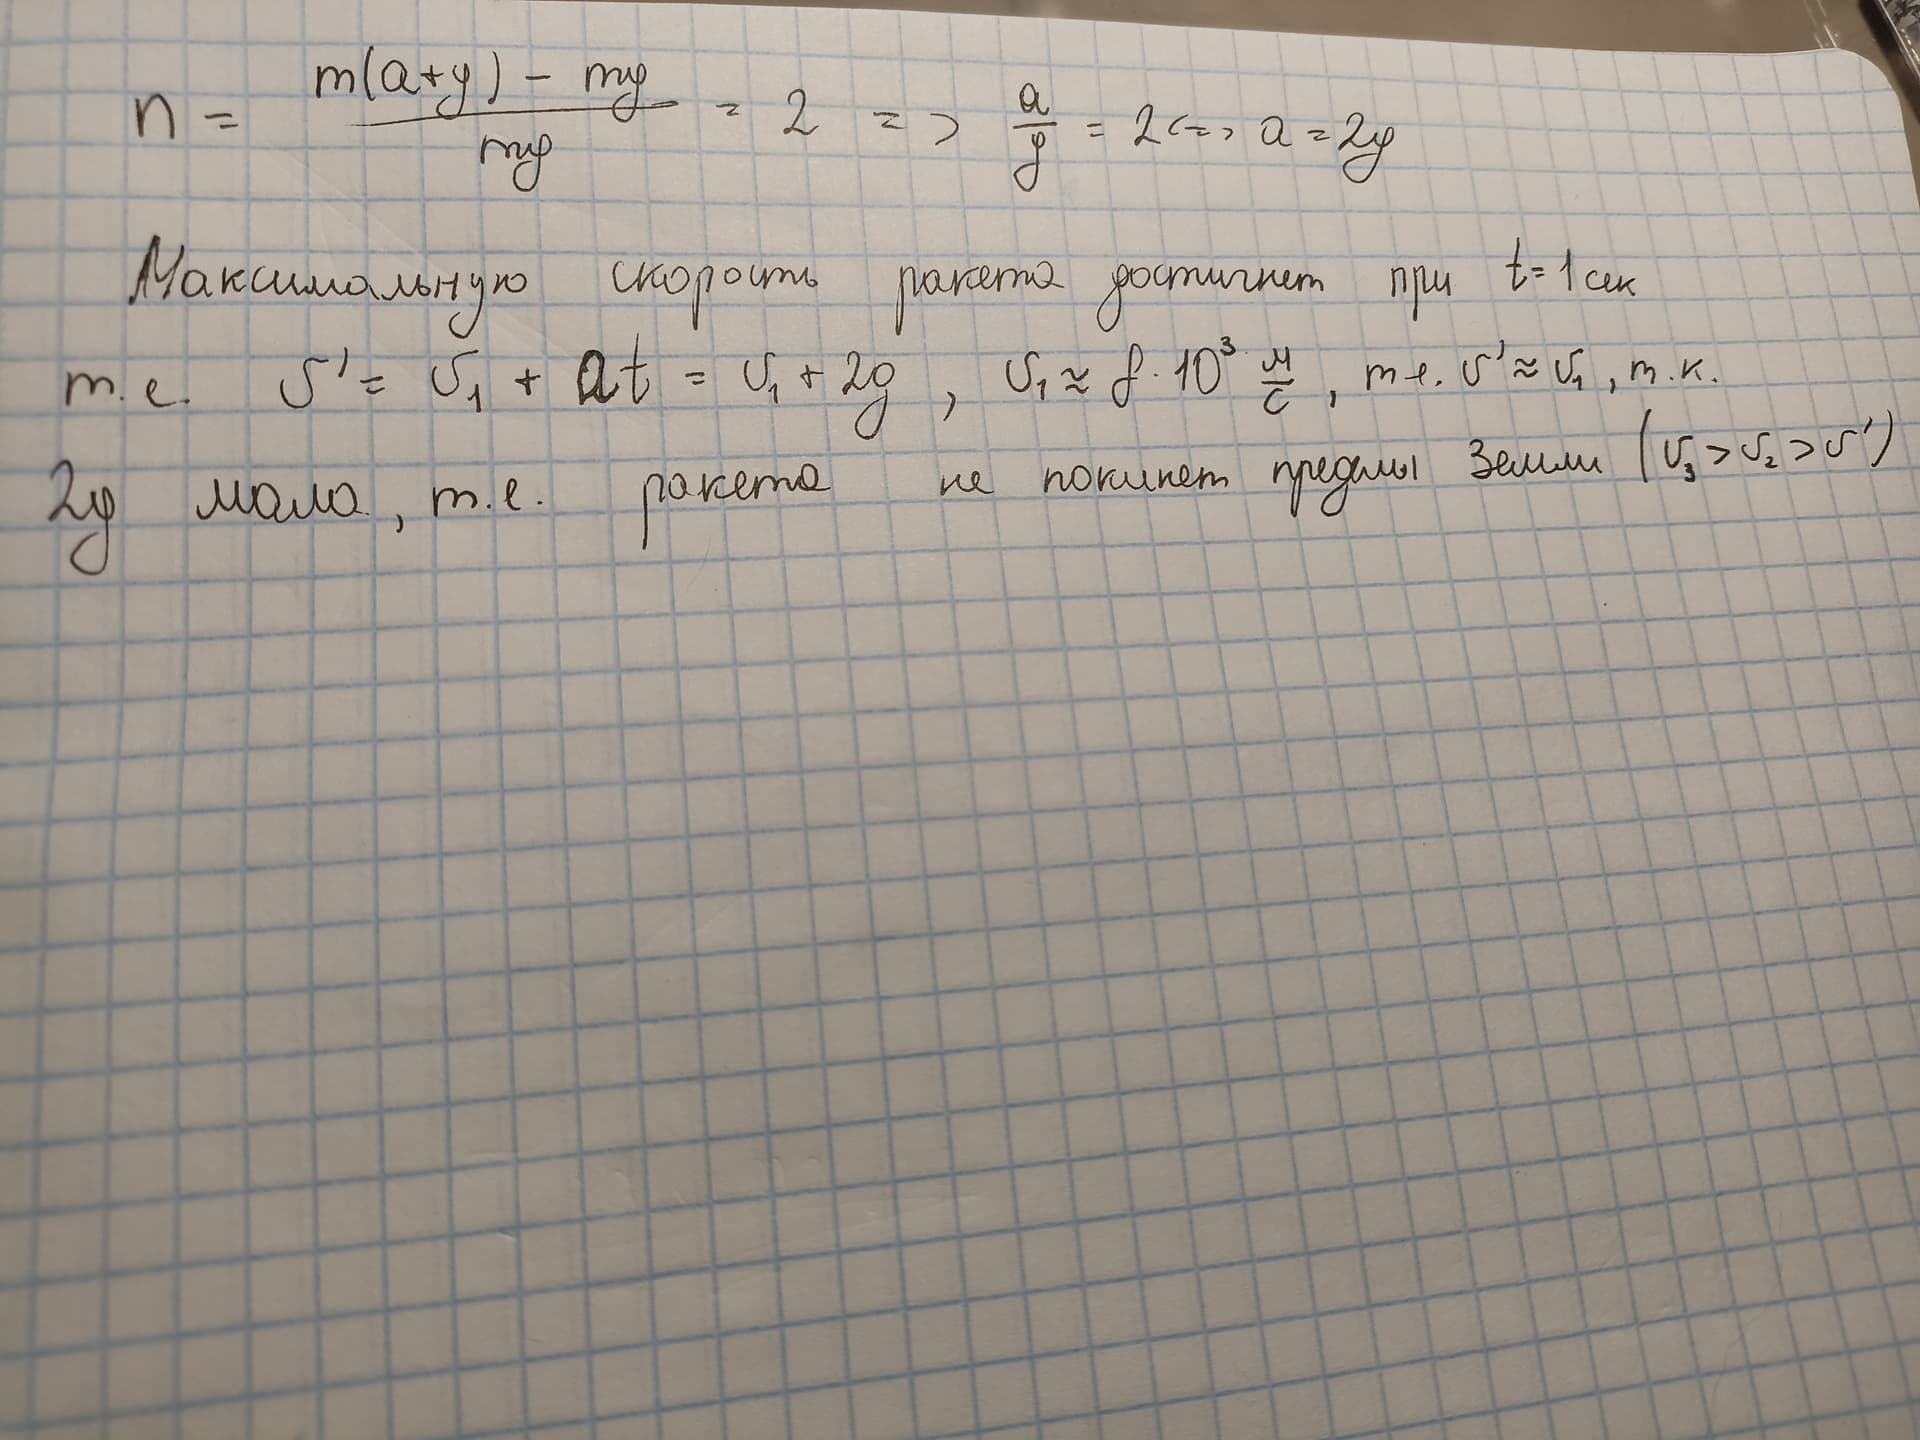 n = (m(a+g) - mg)/mg = 2 => a/g = 2 <=> a = 2g
Максимальную скорость ракета достигнет при t = 1 сек
т.е. v' = v₁ + at = v₁ + 2g , v₁ ≈ 8·10³ м/с , т.е. v' ≈ v₁ , т.к.
2g мала, т.е. ракета не покинет пределы Земли (v₃ > v₂ > v')